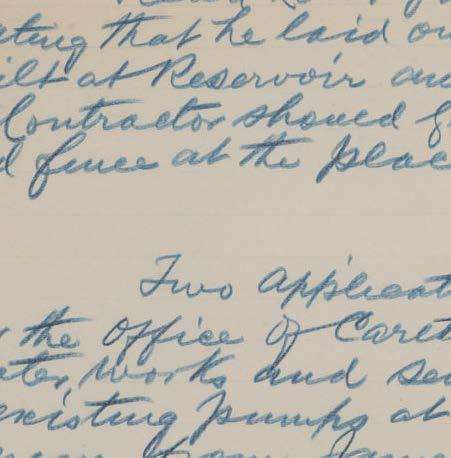 ating that he laid ou
ilt at Reservoir and
Contractor should f
d fence at the plac
Two applicat
the office of Caret
ater works and se
existing pumps at